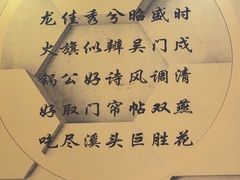 龙佳秀兮昭盛时
火旗似辨吴门戍
锅公好诗风调清
好取门帘帖双燕
吃尽溪头巨胜花